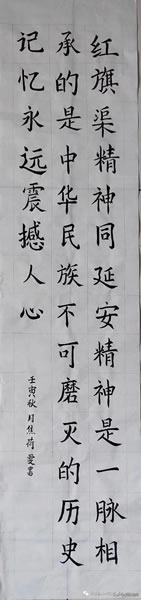 红旗渠精神同延安精神是一脉相
承的是中华民族不可磨灭的历史
记忆永远震撼人心
壬寅秋月焦荷曼书